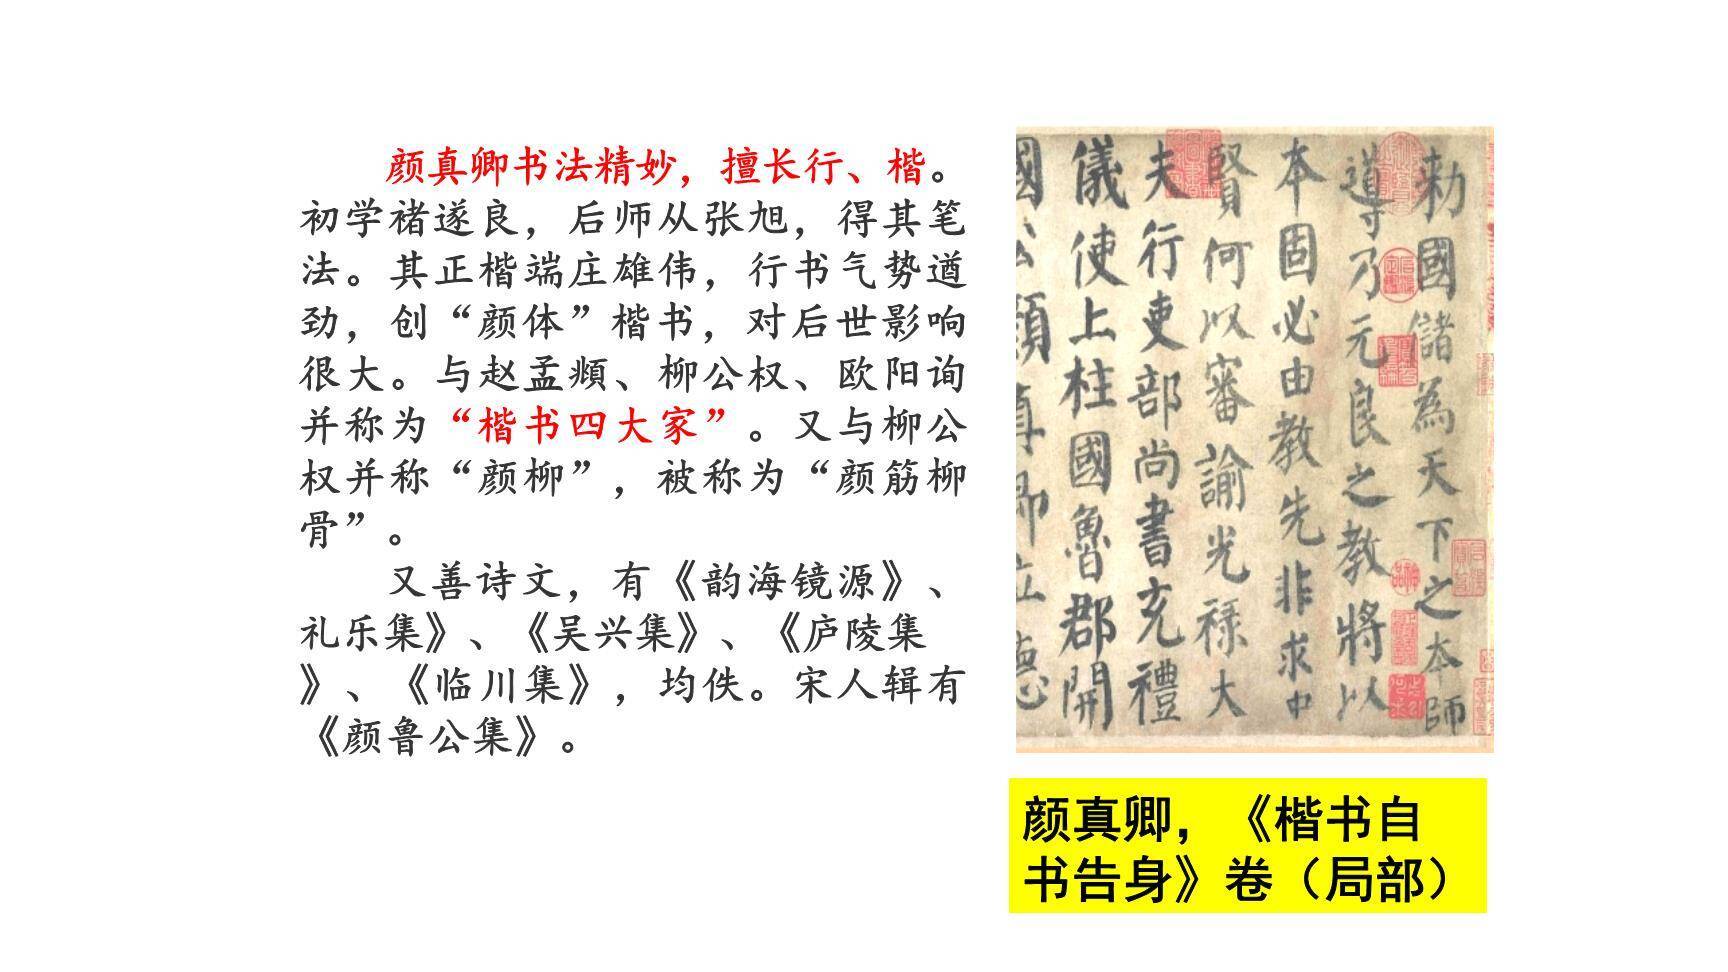 颜真卿书法精妙，擅长行、楷。
初学褚遂良，后师从张旭，得其笔
法。其正楷端庄雄伟，行书气势遒
劲，创“颜体”楷书，对后世影响
很大。与赵孟頫、柳公权、欧阳询
并称为“楷书四大家”。又与柳公
权并称“颜柳”，被称为“颜筋柳
骨”。
又善诗文，有《韵海镜源》、
礼乐集》、《吴兴集》、《庐陵集
》、《临川集》，均佚。宋人辑有
《颜鲁公集》。
勅國儲為天下之本師
導乃元良之教將以
本固必由教先非求中
賢何以審諭光祿大
夫行吏部尚書充禮
儀使上柱國魯郡開
國公顏真卿立德
颜真卿，《楷书自
书告身》卷（局部）